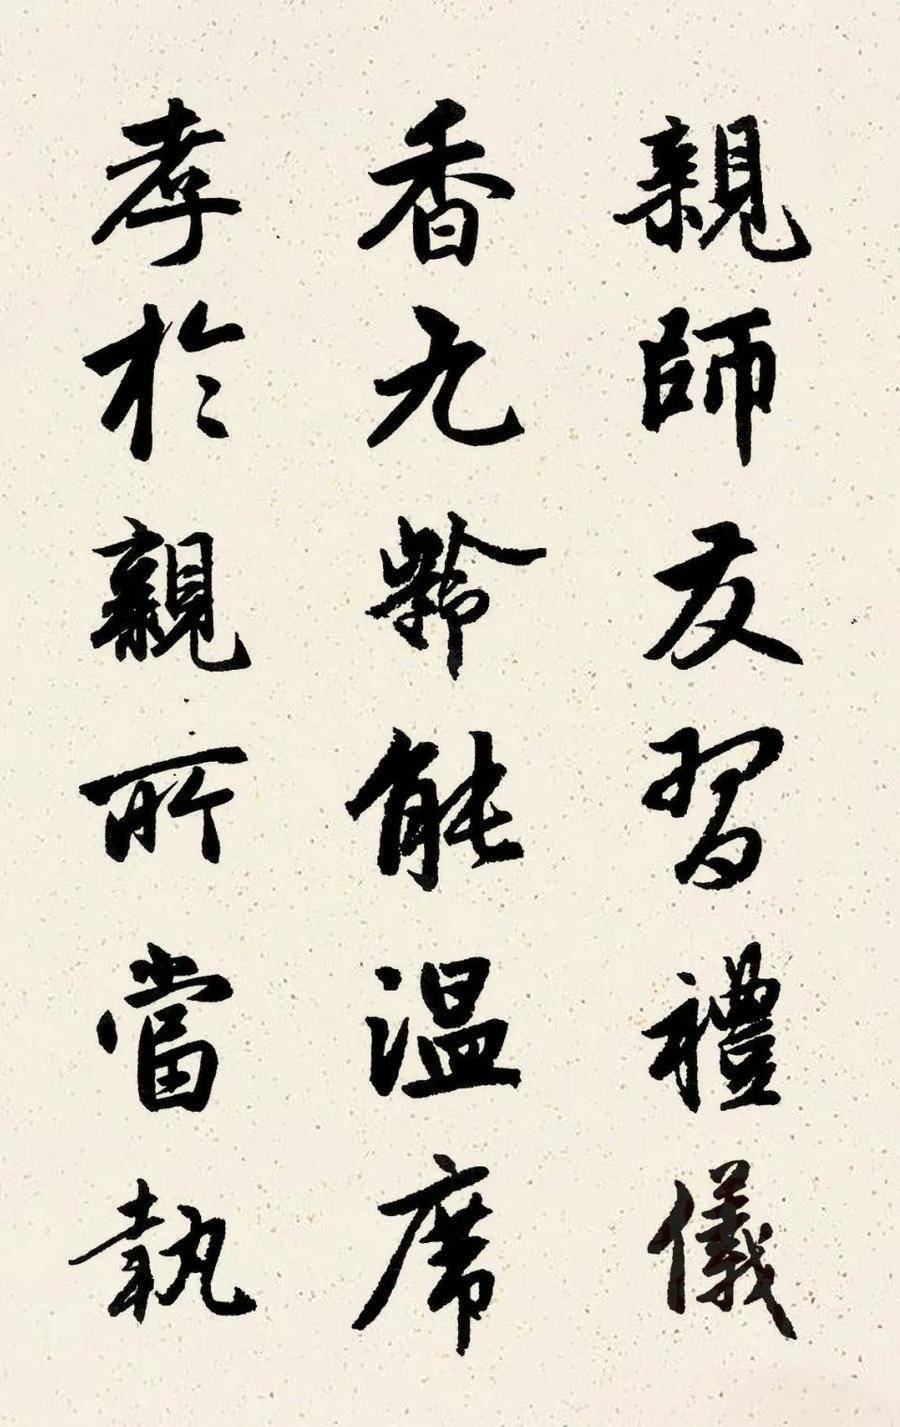 親師友習禮儀
香九齡能温席
孝於親所當執